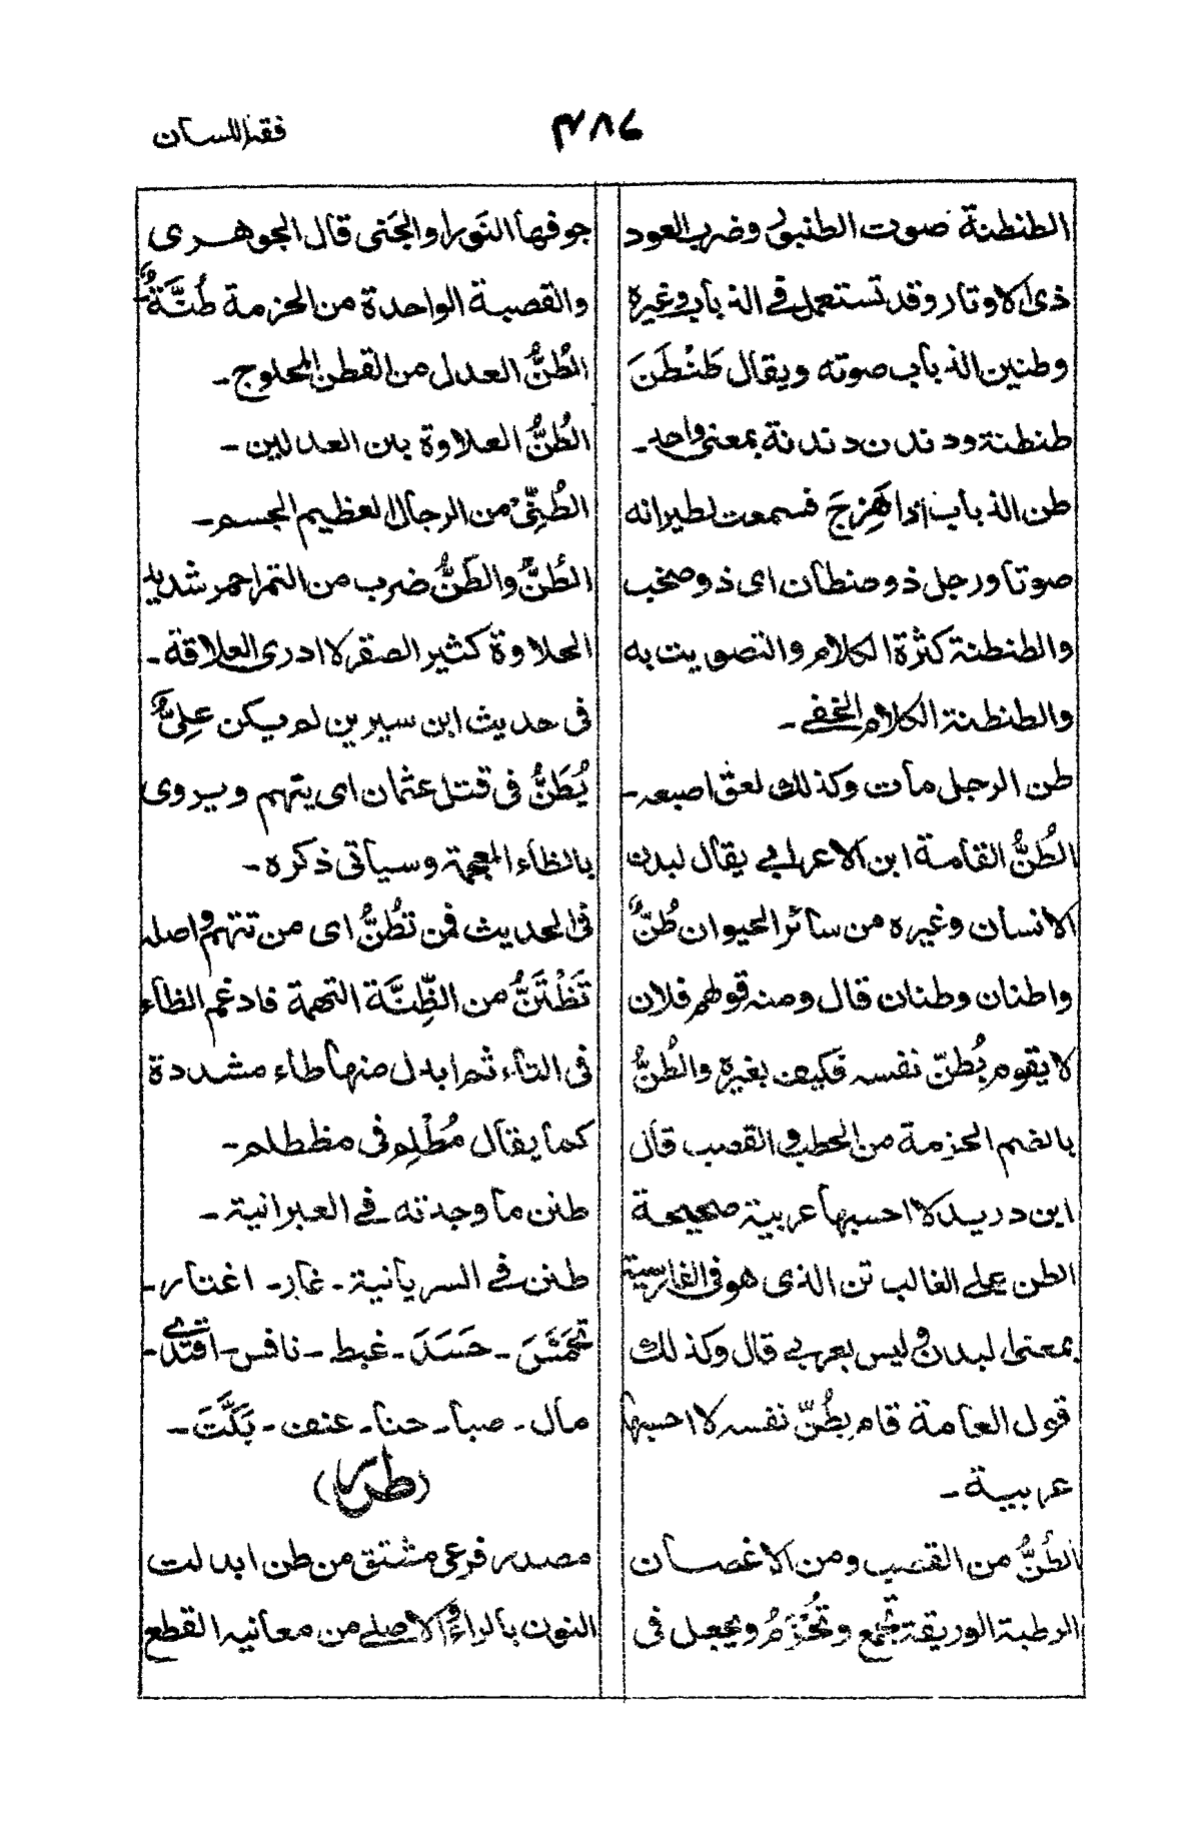 فقہ اللسان
٣٨٦
الطنطنة صوت الطنبور وضرب العود
ذی الاوتار وقد تستعمل فی الذباب وغیره
وطنین الذباب صوته ویقال طَنْطَنَ
طنطنة ودندن دندنة بمعنی واحد۔
طن الذباب اذا هَزِجَ فسمعت لطیرانه
صوتا ورجل ذو طنطان ای ذو صخب
والطنطنة کثرة الکلام والتصویت به
والطنطنة الکلام الخفی۔
طن الرجل مات وکذلك لعق اصبعه۔
الطُنُّ القامة ابن الاعرابی یقال لبدن
الانسان وغیره من سائر الحیوان طُنٌّ
واطنان وطنان قال ومنه قولهم فلان
لا یقوم بُطنّ نفسه فکیف بغیره والطُنُّ
بالضم الحزمة من الحطب والقصب قال
ابن درید لا احسبها عربیة صحیحة
الطن علی الغالب تن الذی هو فی الفارسیة
بمعنی البدن ولیس بعربی قال وکذلك
قول العامة قام بطُنّ نفسه لا احسبها
عربیة۔
الطُنُّ من القصب ومن الاغصان
الرطبة الوریقة تجمع وتُحْزَمُ ویجعل فی
جوفها النَور او الجَنی قال الجوهری
والقصبة الواحدة من الحزمة طُنَّةٌ
الطُنُّ العدل من القطن المحلوج۔
الطُنُّ العلاوة بین العدلین۔
الطُنِّیُّ من الرجال العظیم الجسم۔
الطُنُّ والطَنُّ ضرب من التمر احمر شدید
الحلاوة کثیر الصقر لا ادری العلاقة۔
فی حدیث ابن سیرین لم یکن عَلِیٌّ
یُطَنُّ فی قتل عثمان ای یتهم ویروی
بالظاء المعجمة وسیأتی ذکره۔
فی الحدیث فمن تَطُنُّ ای من تتهم واصله
تَظْتَنُّ من الظِنَّة التهمة فادغم الظاء
فی التاء ثم ابدل منها طاء مشددة
کما یقال مُطْلِم فی مظطلم۔
طنن ما وجدته فی العبرانیة۔
طنن فی السریانیة۔ غار۔ اغتار۔
تحَمَّسَ۔ حَسَدَ۔ غبط۔ نافس۔ اقتدی۔
مال۔ صبا۔ حنا۔ عنف۔ بَکَّتَ۔
(طر)
مصدر فرعی مشتق من طن ابدلت
النون بالراء والاصلی من معانیه القطع